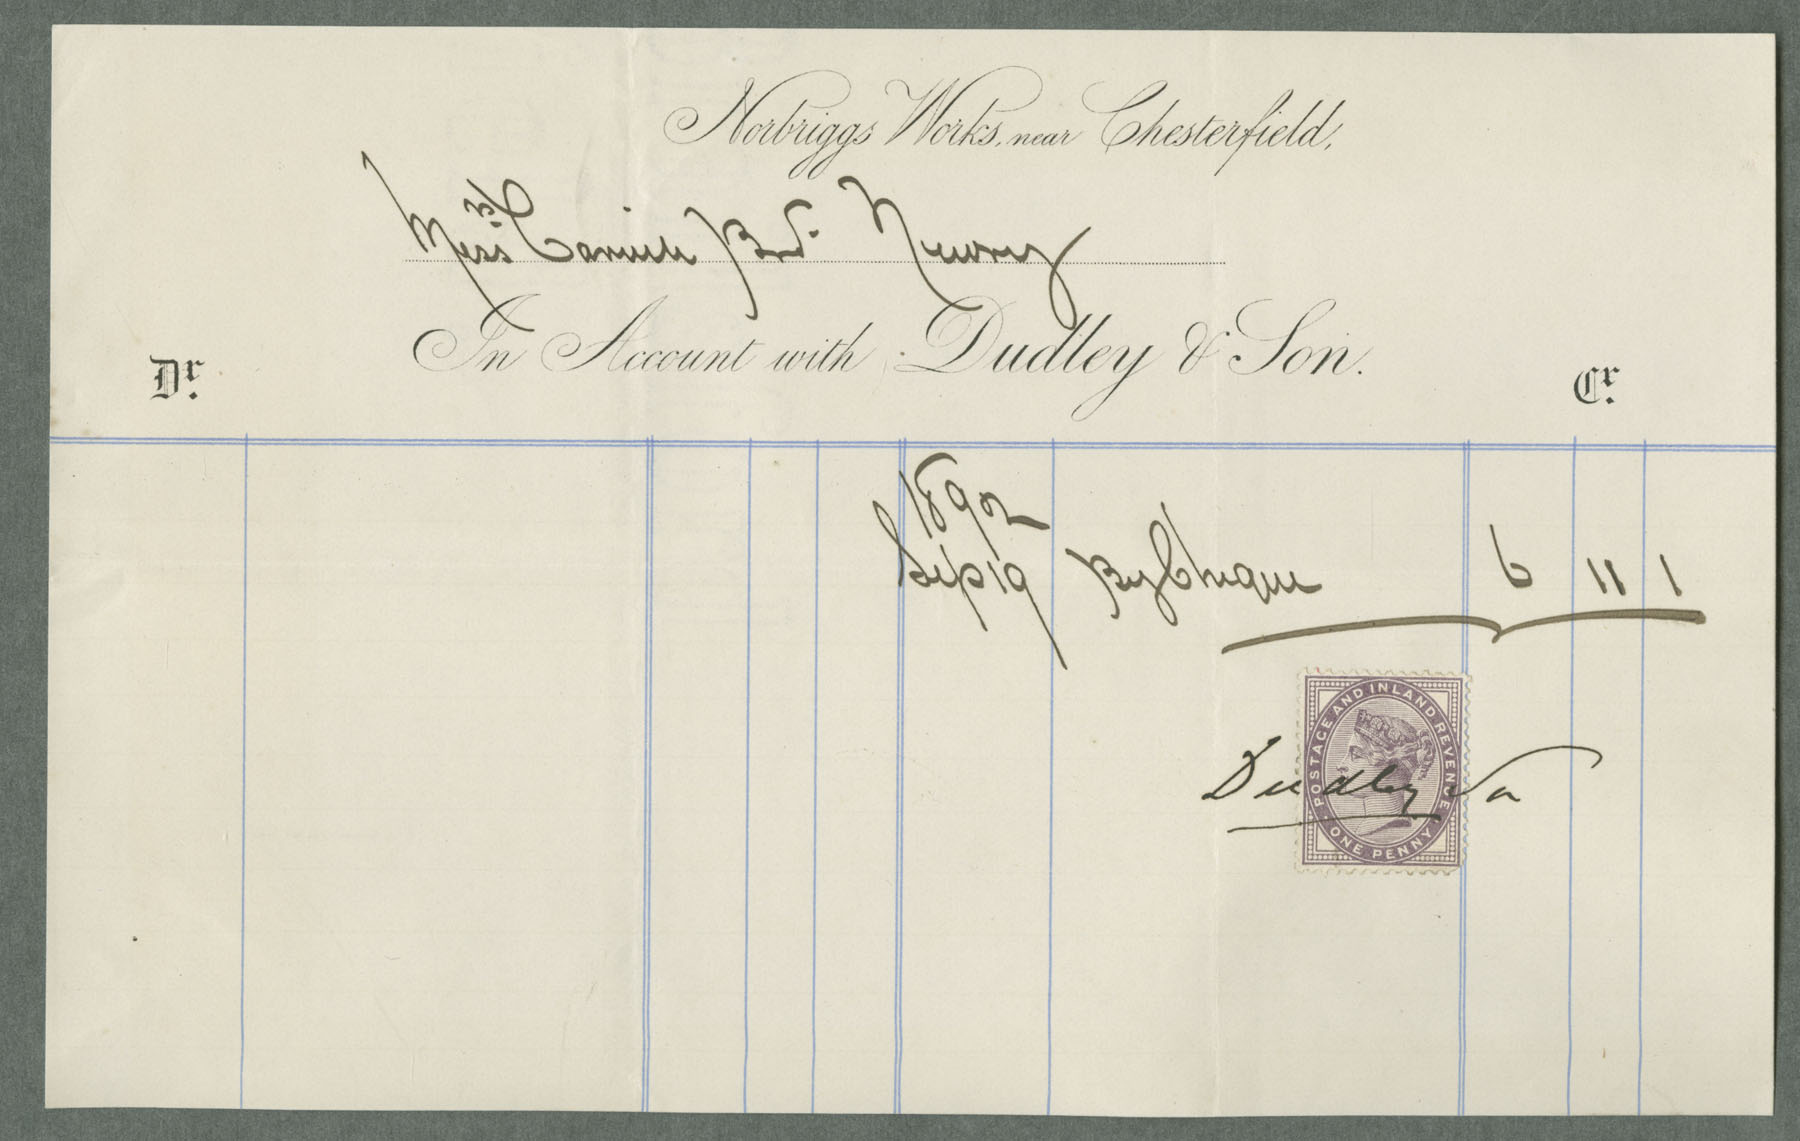 Norbriggs Works, near Chesterfield,
Messrs Bros. Newry
In Account with Dudley & Son.
Dr. Cr.
1892
Sep 19 By Cheque 6 11 1
POSTAGE AND INLAND REVENUE
ONE PENNY
Dudley Son